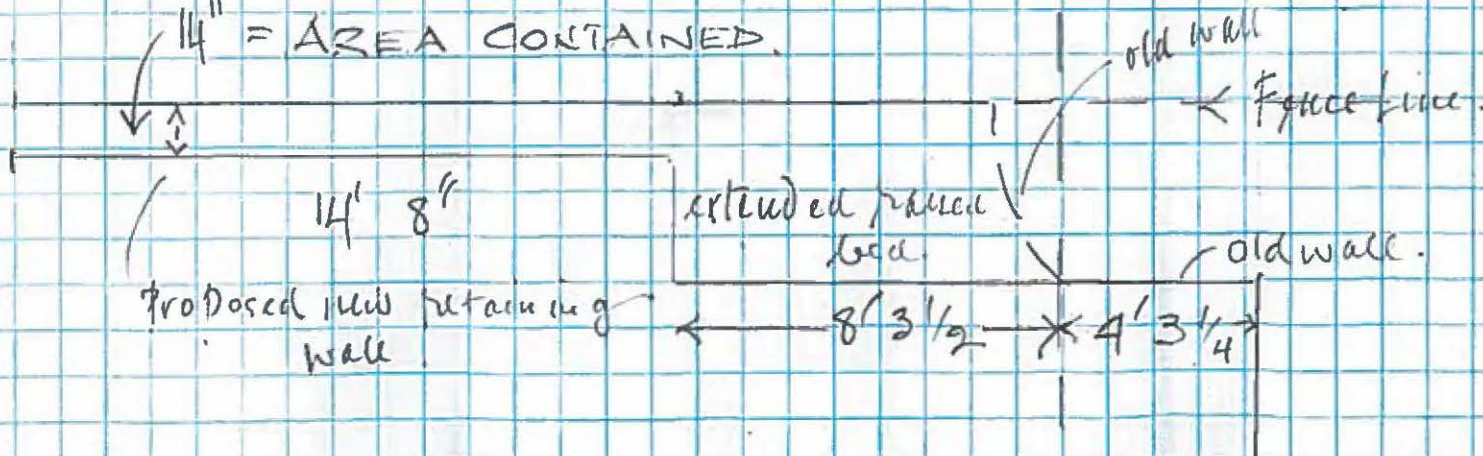 14" = AREA CONTAINED.
old wall
Fence Line.
14' 8"
extended raised
bed.
old wall.
Proposed new retaining
wall
8' 3 1/2
4' 3 1/4